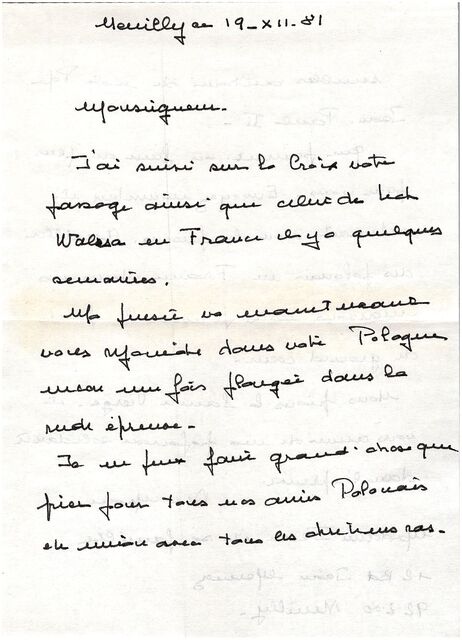 Neuilly ce 19-XII-81
Monseigneur-
J'ai suivi sur la Croix votre
passage ainsi que celui de Lech
Walesa en France il y a quelques
semaines.
Ma pensée va maintenant
vous rejoindre dans votre Pologne
encore une fois plongée dans la
rude épreuve-
Je ne peux faire grand-chose que
prier pour tous nos amis Polonais
en union avec tous les chrétiens ras-